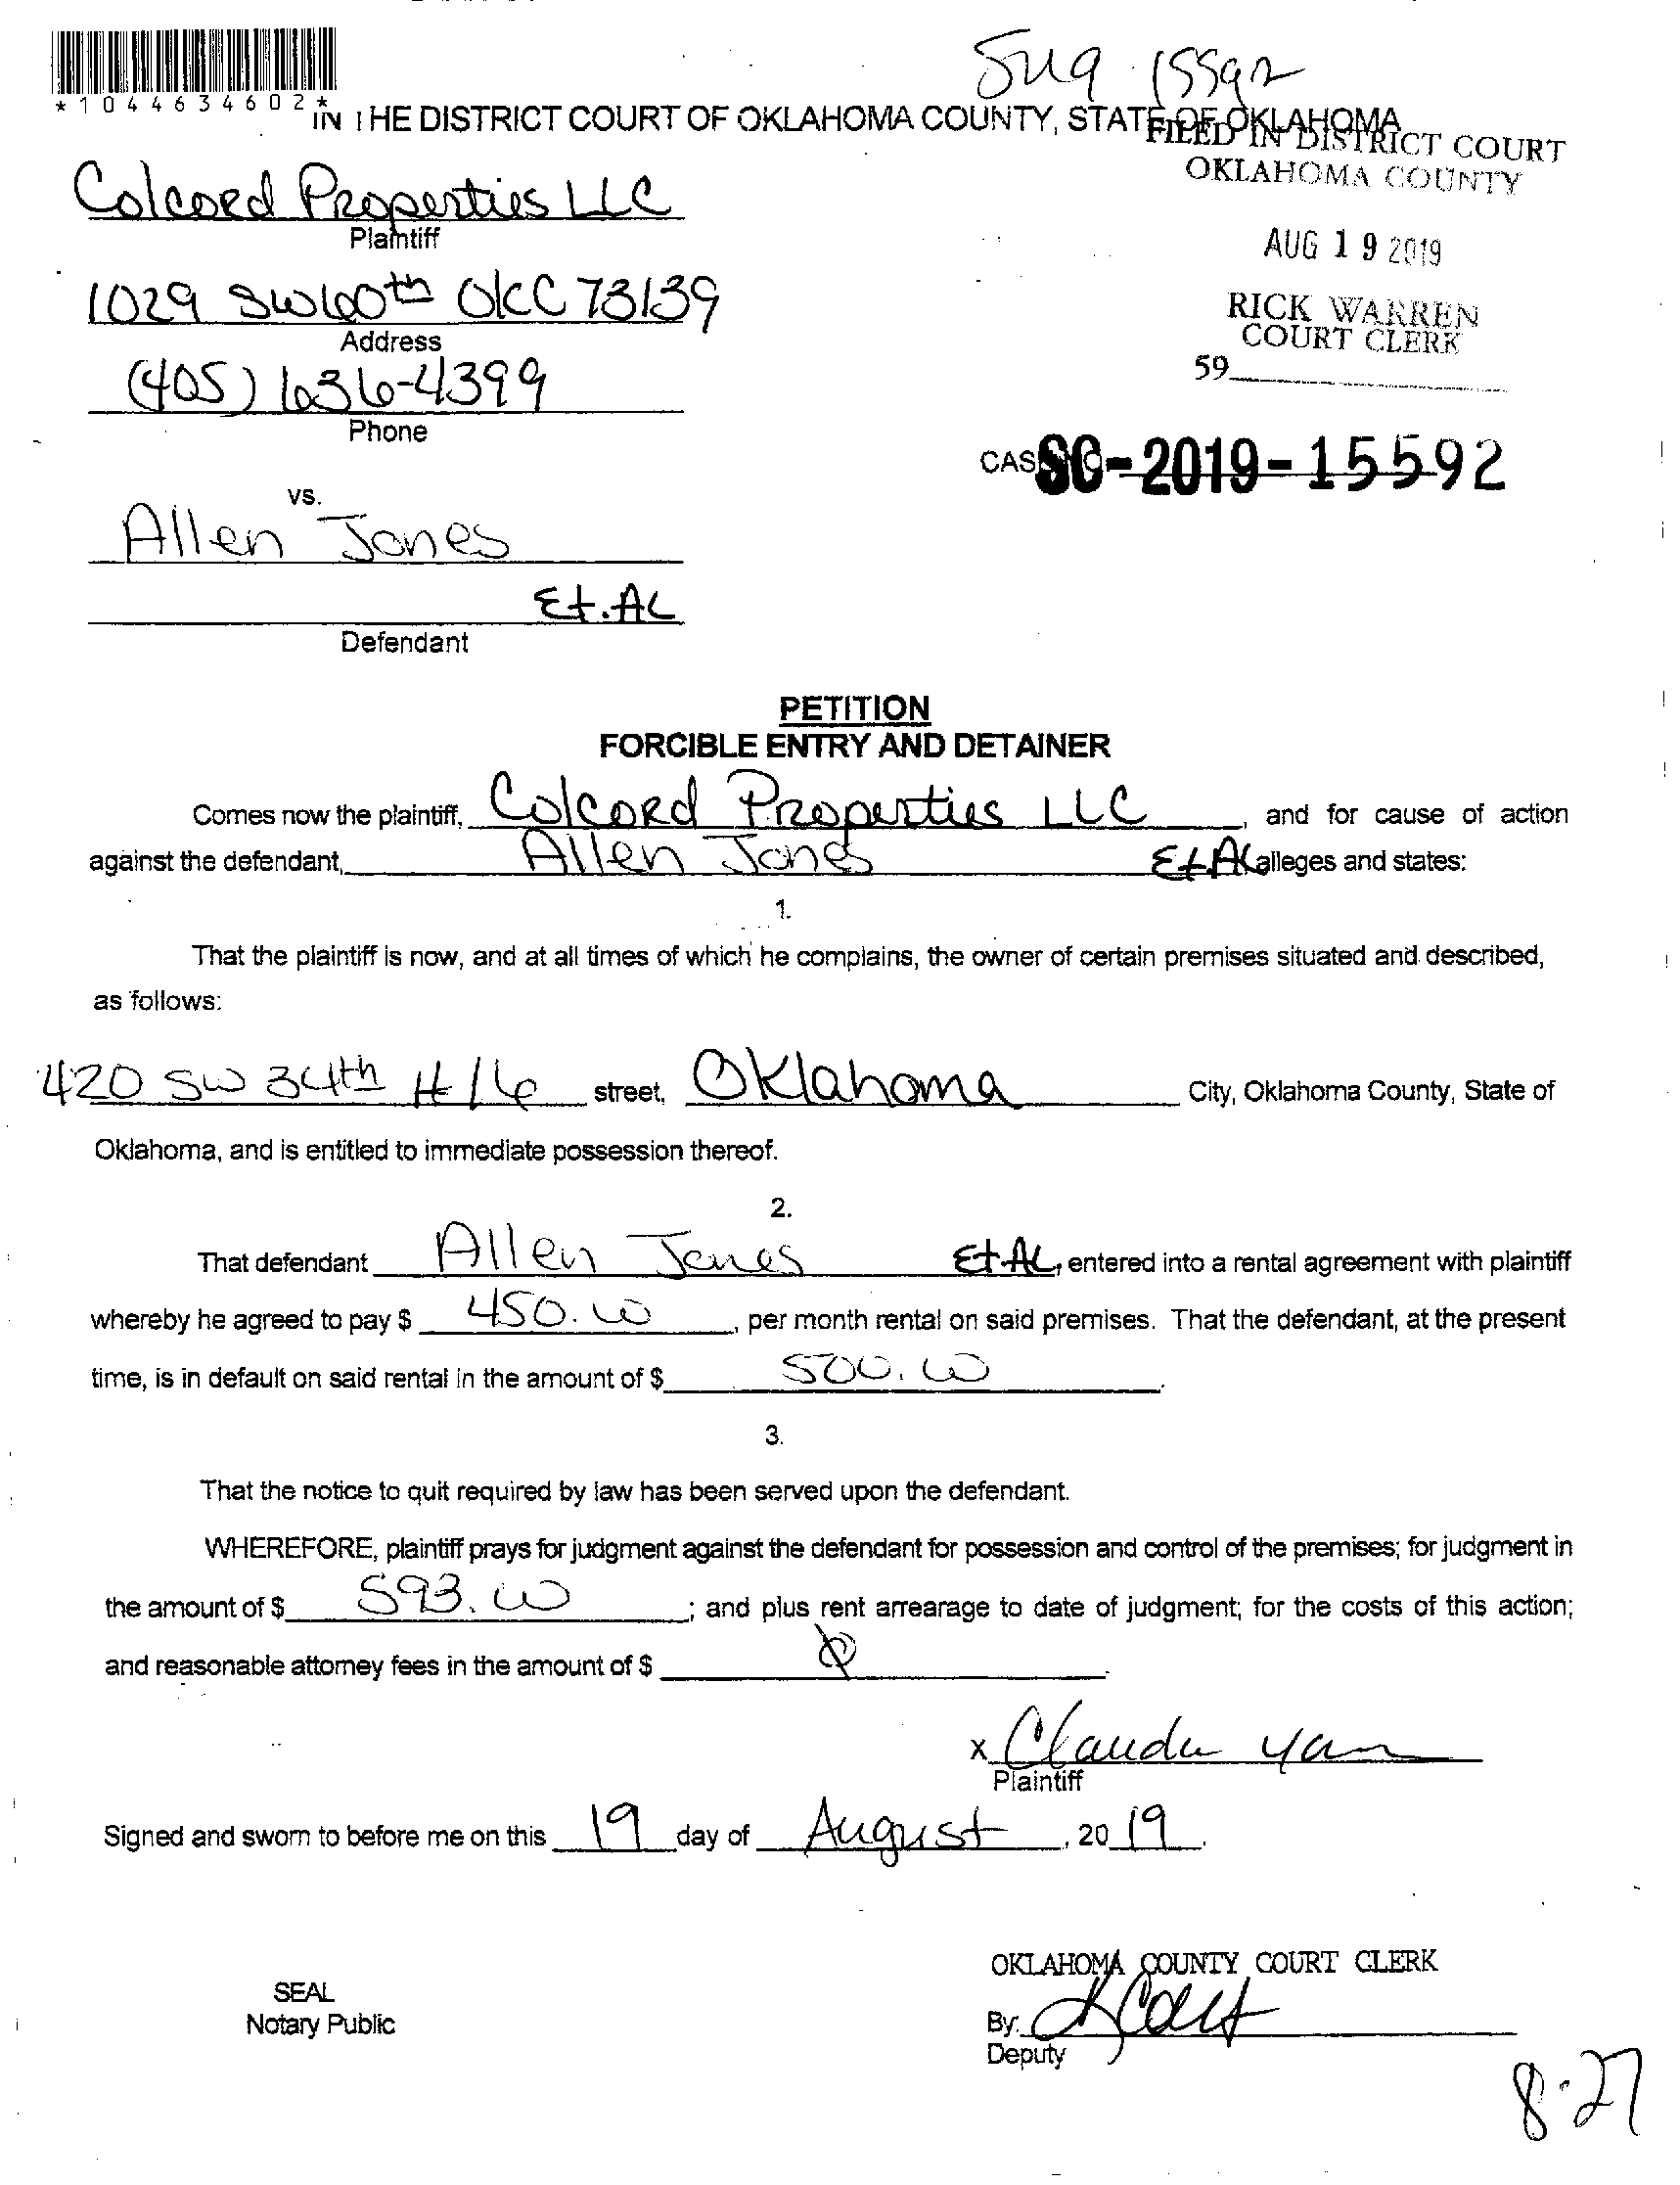 *1044634602*
IN THE DISTRICT COURT OF OKLAHOMA COUNTY, STATE OF OKLAHOMA
FILED IN DISTRICT COURT
OKLAHOMA COUNTY
Colcord Properties LLC
Plaintiff
AUG 19 2019
1029 SW 60th OKC 73139
Address
RICK WARREN
COURT CLERK
59
(405) 636-4399
Phone
CAS SC-2019-15592
vs.
Allen Jones
Et.AL
Defendant
PETITION
FORCIBLE ENTRY AND DETAINER
Comes now the plaintiff, Colcord Properties LLC, and for cause of action
against the defendant, Allen Jones Et AL alleges and states:
1.
That the plaintiff is now, and at all times of which he complains, the owner of certain premises situated and described,
as follows:
420 SW 34th #16 street, Oklahoma City, Oklahoma County, State of
Oklahoma, and is entitled to immediate possession thereof.
2.
That defendant Allen Jones Et AL, entered into a rental agreement with plaintiff
whereby he agreed to pay $ 450.00, per month rental on said premises. That the defendant, at the present
time, is in default on said rental in the amount of $ 500.00.
3.
That the notice to quit required by law has been served upon the defendant.
WHEREFORE, plaintiff prays for judgment against the defendant for possession and control of the premises; for judgment in
the amount of $ 593.00; and plus rent arrearage to date of judgment; for the costs of this action;
and reasonable attorney fees in the amount of $
x Claudia
Plaintiff
Signed and sworn to before me on this 19 day of August, 2019.
OKLAHOMA COUNTY COURT CLERK
SEAL
Notary Public
By:
Deputy
8-27